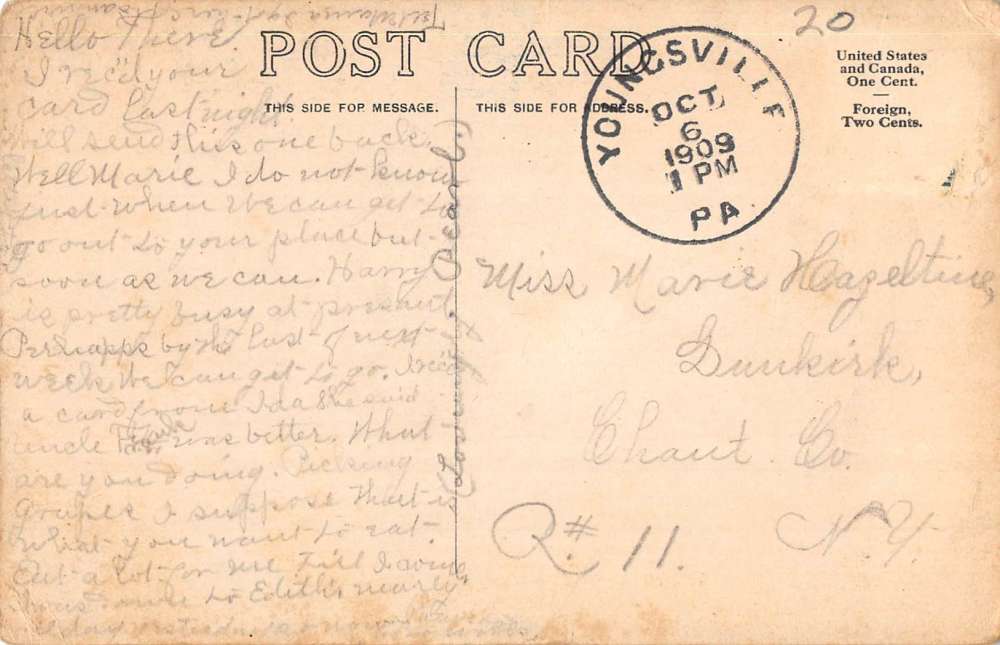 20
POST CARD
THIS SIDE FOR MESSAGE.
THIS SIDE FOR ADDRESS.
United States
and Canada,
One Cent.
Foreign,
Two Cents.
YOUNGSVILLE
OCT
6
1909
1 PM
PA
Hello There.
I rec'd your
card last night
will send this one back.
Well Marie I do not know
just when we can get to
go out to your place but
soon as we can. Harry
is pretty busy at present.
Perhapps by the last of next
week we can get to go. I rec'd
a card from Ida she said
uncle Frank was better. What
are you doing. Picking
Grapes I suppose that is
what you want to eat.
Eat a lot for me
down to Edith's nearly
all day
Love
Pearl.
Miss Marie Hazeltine
Dunkirk,
Chaut. Co.
R.# 11.
N.Y.